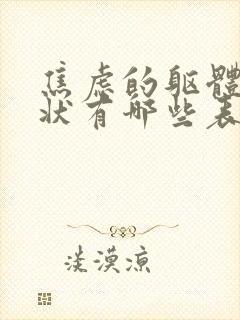 焦虑的躯體
状有哪些表
淡漠凉